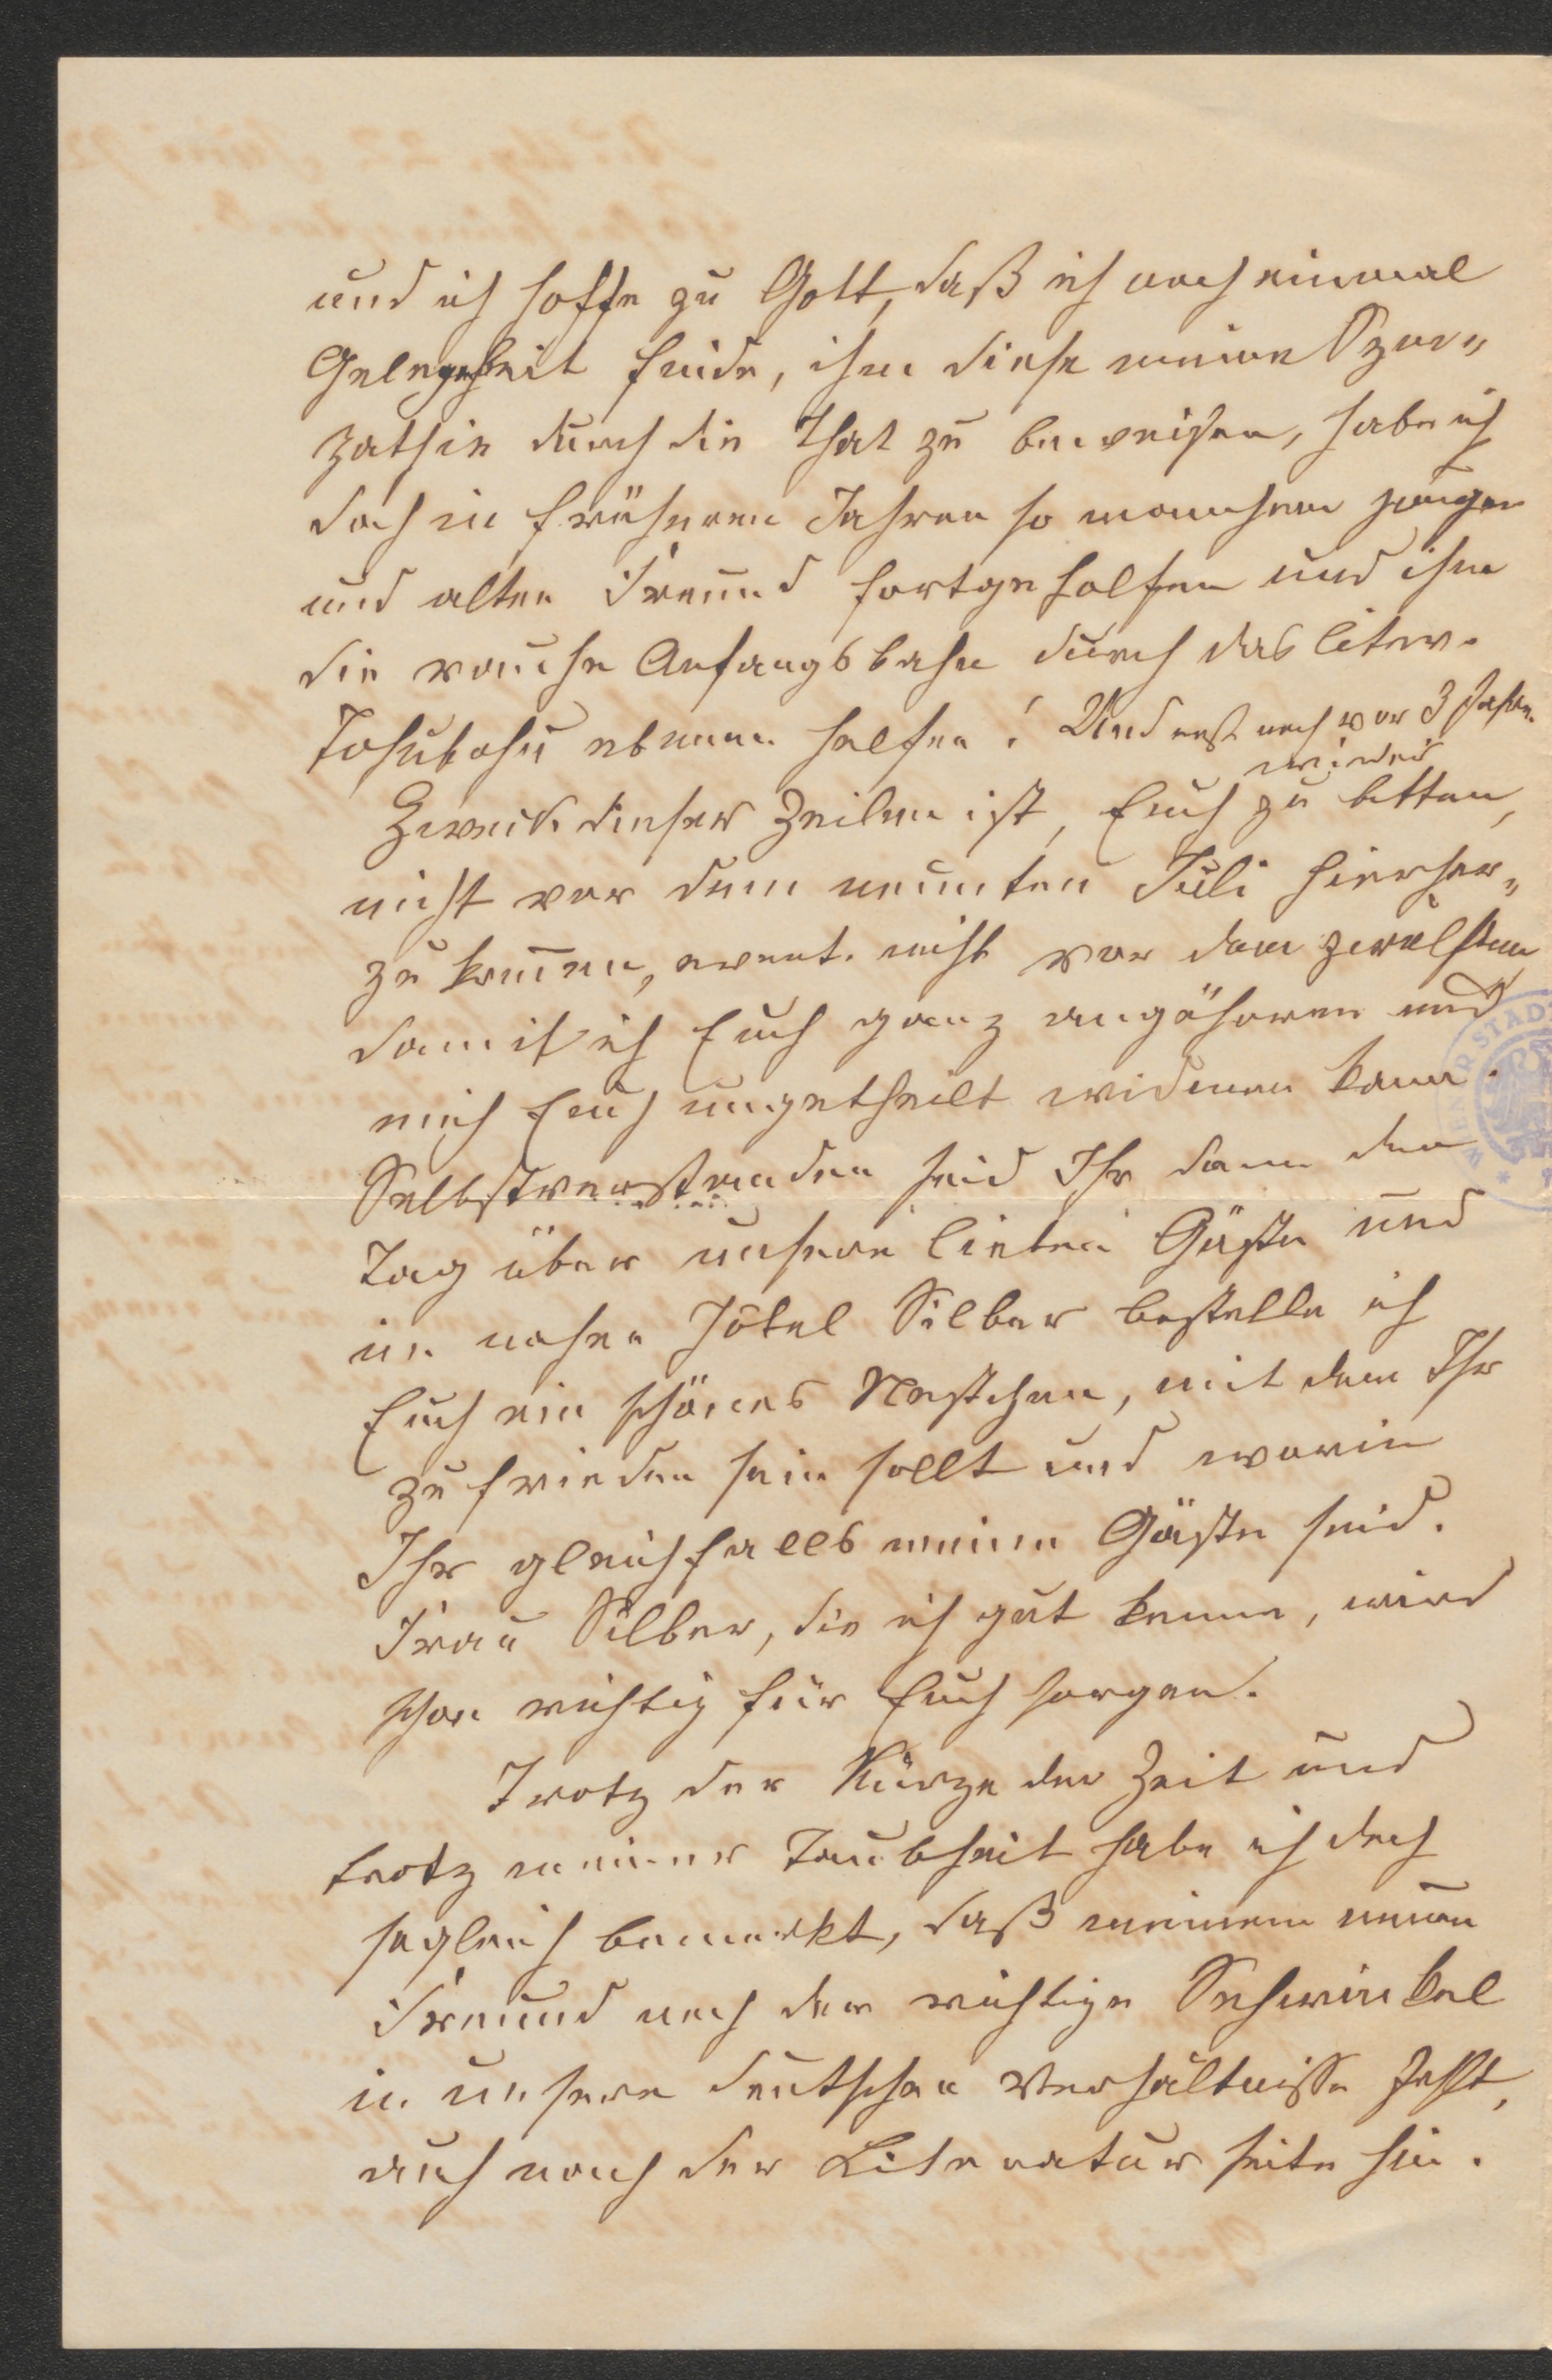 und ich hoffe zu Gott, daß ich noch einmal
Gelegenheit finde, ihm diese meine Sym„
pathie durch die That zu beweisen, habe ich
doch in früheren Jahren so manchem jungen
und alten Freund fortgeholfen und ihm
die rauhe Anfangsbahn durch das liter.
Tohubohu ebenen helfen! Und erst noch vor 3 Jahren
wieder
Zweck dieser Zeilen ist, Euch zu bitten,
nicht vor dem neunten Juli hierher„
zu kom̅en, event. nicht vor dem zwölften
damit ich Euch ganz angehören und
mich Euch ungetheilt widmen kann.
Selbstverstanden seid Ihr dann den
Tag über unsere lieben Gäste und
im nahen Hôtel Silber bestelle ich
Euch ein schönes Nestchen, mit dem Ihr
zufrieden sein sollt und worin
Ihr gleichfalls meine Gäste seid.
Frau Silber, die ich gut kenne, wird
schon richtig für Euch sorgen.
Trotz der Kürze der Zeit und
trotz meiner Taubheit habe ich doch
sogleich bemerkt, daß meinem neuen
Freund noch der richtige Sehwinkel
in unsere deutschen Verhältnisse fehlt,
auch nach der Literaturseite hin.
WIENER STADT